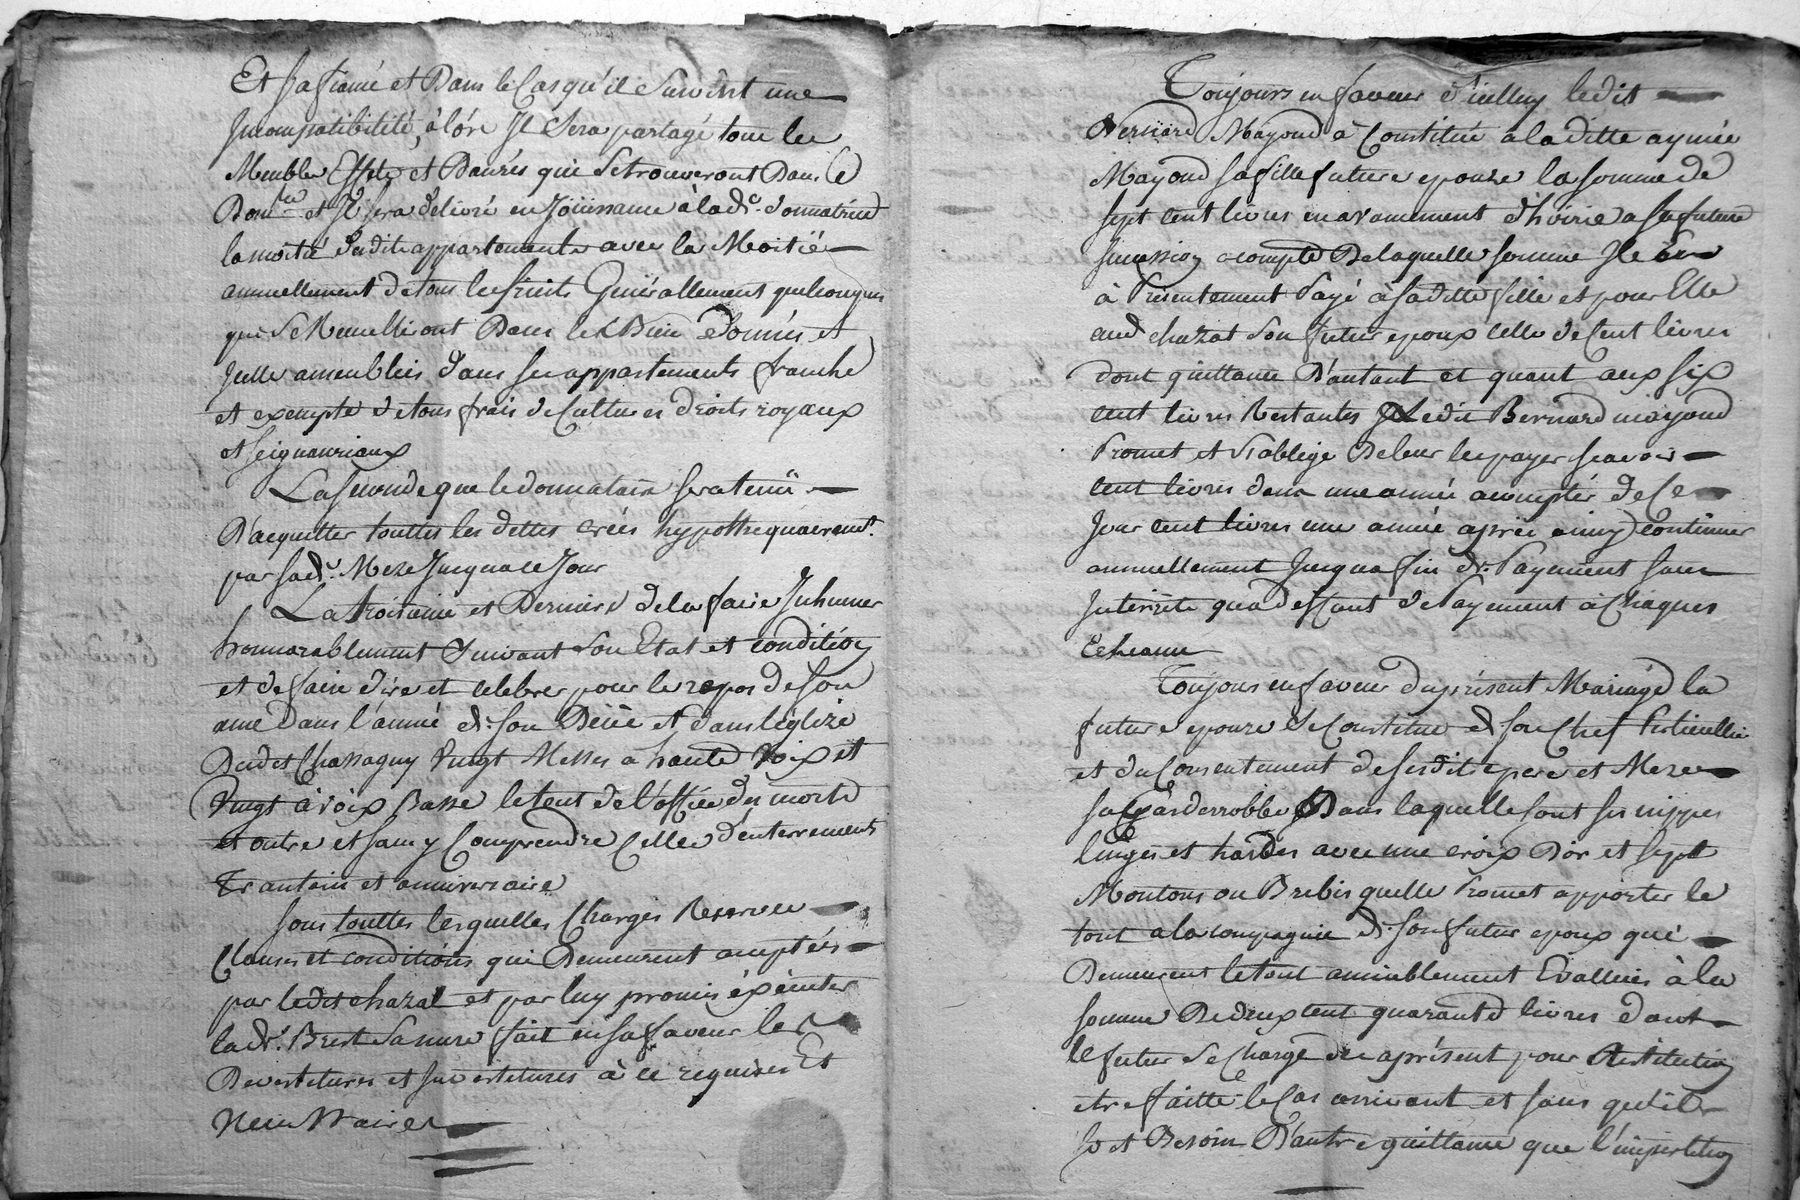 Et sa fiancé et Dans le Cas qu'il Survint une
Incompatibilité, à lors Il Sera partagé tous les
Meubles Effets et Danrés qui Se trouveront Dans le
Domne et Il sera délivré en Joüissance à la de. donnatrice
la moitié desdits appartements avec la Moitié
annuellement de tous les fruits Généralement quelconques
qui Se Receuilliront Dans les Bien Donnés et
Icelle ameublies dans ses appartements franche
et exempte de tous frais de Culture et droits royaux
et seigneuriaux
La Seconde que le donnataire sera tenû
D'acquitter touttes les dettes créés hypothequairemt.
par sade. Mere Jusqua ce Jour
La troisieme et Derniere de la faire Inhumer
honnorablement Suivant Son Etat et condition
et de faire dire et celebrer pour le repos de Son
ame Dans l'année de Son Décès et dans l'église
Dudet Chassagny Vingt Messes a haute Voix et
Vingt à voix Basse le tout de l'office des morts
et outre et sans y Comprendre Celles d'enterrement
Trantain et anniversaire
Sous touttes lesquelles Charges Reserves
Clauses et conditions qui Demeurent acceptées
par ledit chazal et par luy promis éxécuter
lade. Brest Sa mere fait en sa faveur les
Devestitures et Investitures à ce réquises Et
Necessaires
Toujours en faveur d'icelluy ledit
Bernard Mayoud à Constitué à la ditte aymée
Mayoud sa fille future epouze la somme de
sept cent livres en avancement d'hoirie a sa future
succession acompte De laquelle somme Il en
à Présentement Payé à sa ditte fille et pour Elle
aud chazal Son futur epoux celle de Cent livres
dont quittance D'autant et quant aux six
cent livres Restantes ledit Bernard mayoud
Promet et S'oblige De leur les payer scavoir
cent livres dans une année acompter de Ce
Jour cent livres une année après ainsy continuer
annuellement Jusqua fin de Payement sans
Interêts qua deffaut de Payement à Chaques
Echeance
Toujours en faveur du présent Mariage la
future epouze Se Constitue de son Chef Particullier
et du Consentement de sesdits pere et Mere
sa Garderrobbe Dans laquelle sont ses nippes
linges et hardes avec une croix D'or et sept
Moutons ou Brebis quelle Promet apporter le
tout a la compagnie de Son futur epoux qui
Demeurent le tout amiablement Evalluées à la
somme De deux cent quarante livres dont
le futur Se Charge des aprésent pour Restitution
etre faitte le Cas arrivant et sans qu'il
soit Besoin D'autre quittance que